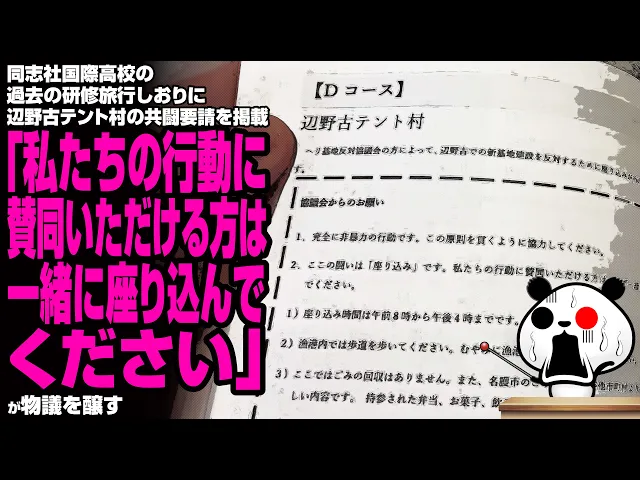 同志社国際高校の
過去の研修旅行しおりに
辺野古テント村の共闘要請を掲載
「私たちの行動に
賛同いただける方は
一緒に座り込んで
ください」
が物議を醸す
【D コース】
辺野古テント村
ヘリ基地反対協議会の方によって、辺野古での新基地建設を反対するために座り込みが
す。
協議会からのお願い
1、完全に非暴力の行動です。この原則を貫くように協力してください。
2、ここの闘いは「座り込み」です。私たちの行動に賛同いただける方は
でください。
1）座り込み時間は午前8時から午後4時までです。
2）漁港内では歩道を歩いてください。むやみに漁港
3）ここではごみの回収はありません。また、名護市のご
しい内容です。 持参された弁当、お菓子、飲